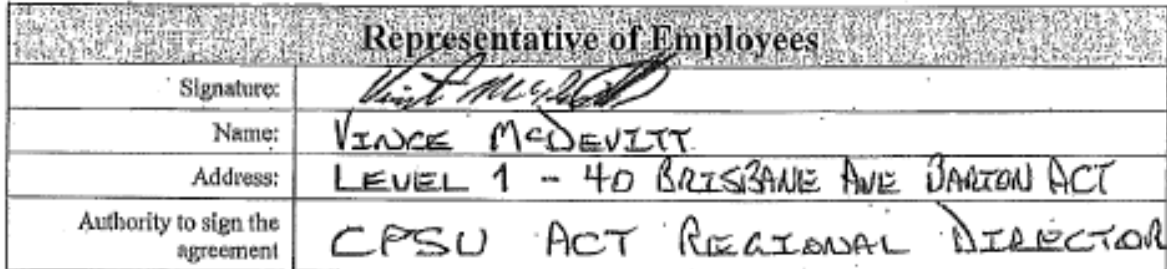 Representative of Employees
Signature: Vince McDevitt
Name: VINCE McDEVITT
Address: LEVEL 1 - 40 BRISBANE AVE BARTON ACT
Authority to sign the
agreement CPSU ACT REGIONAL DIRECTOR